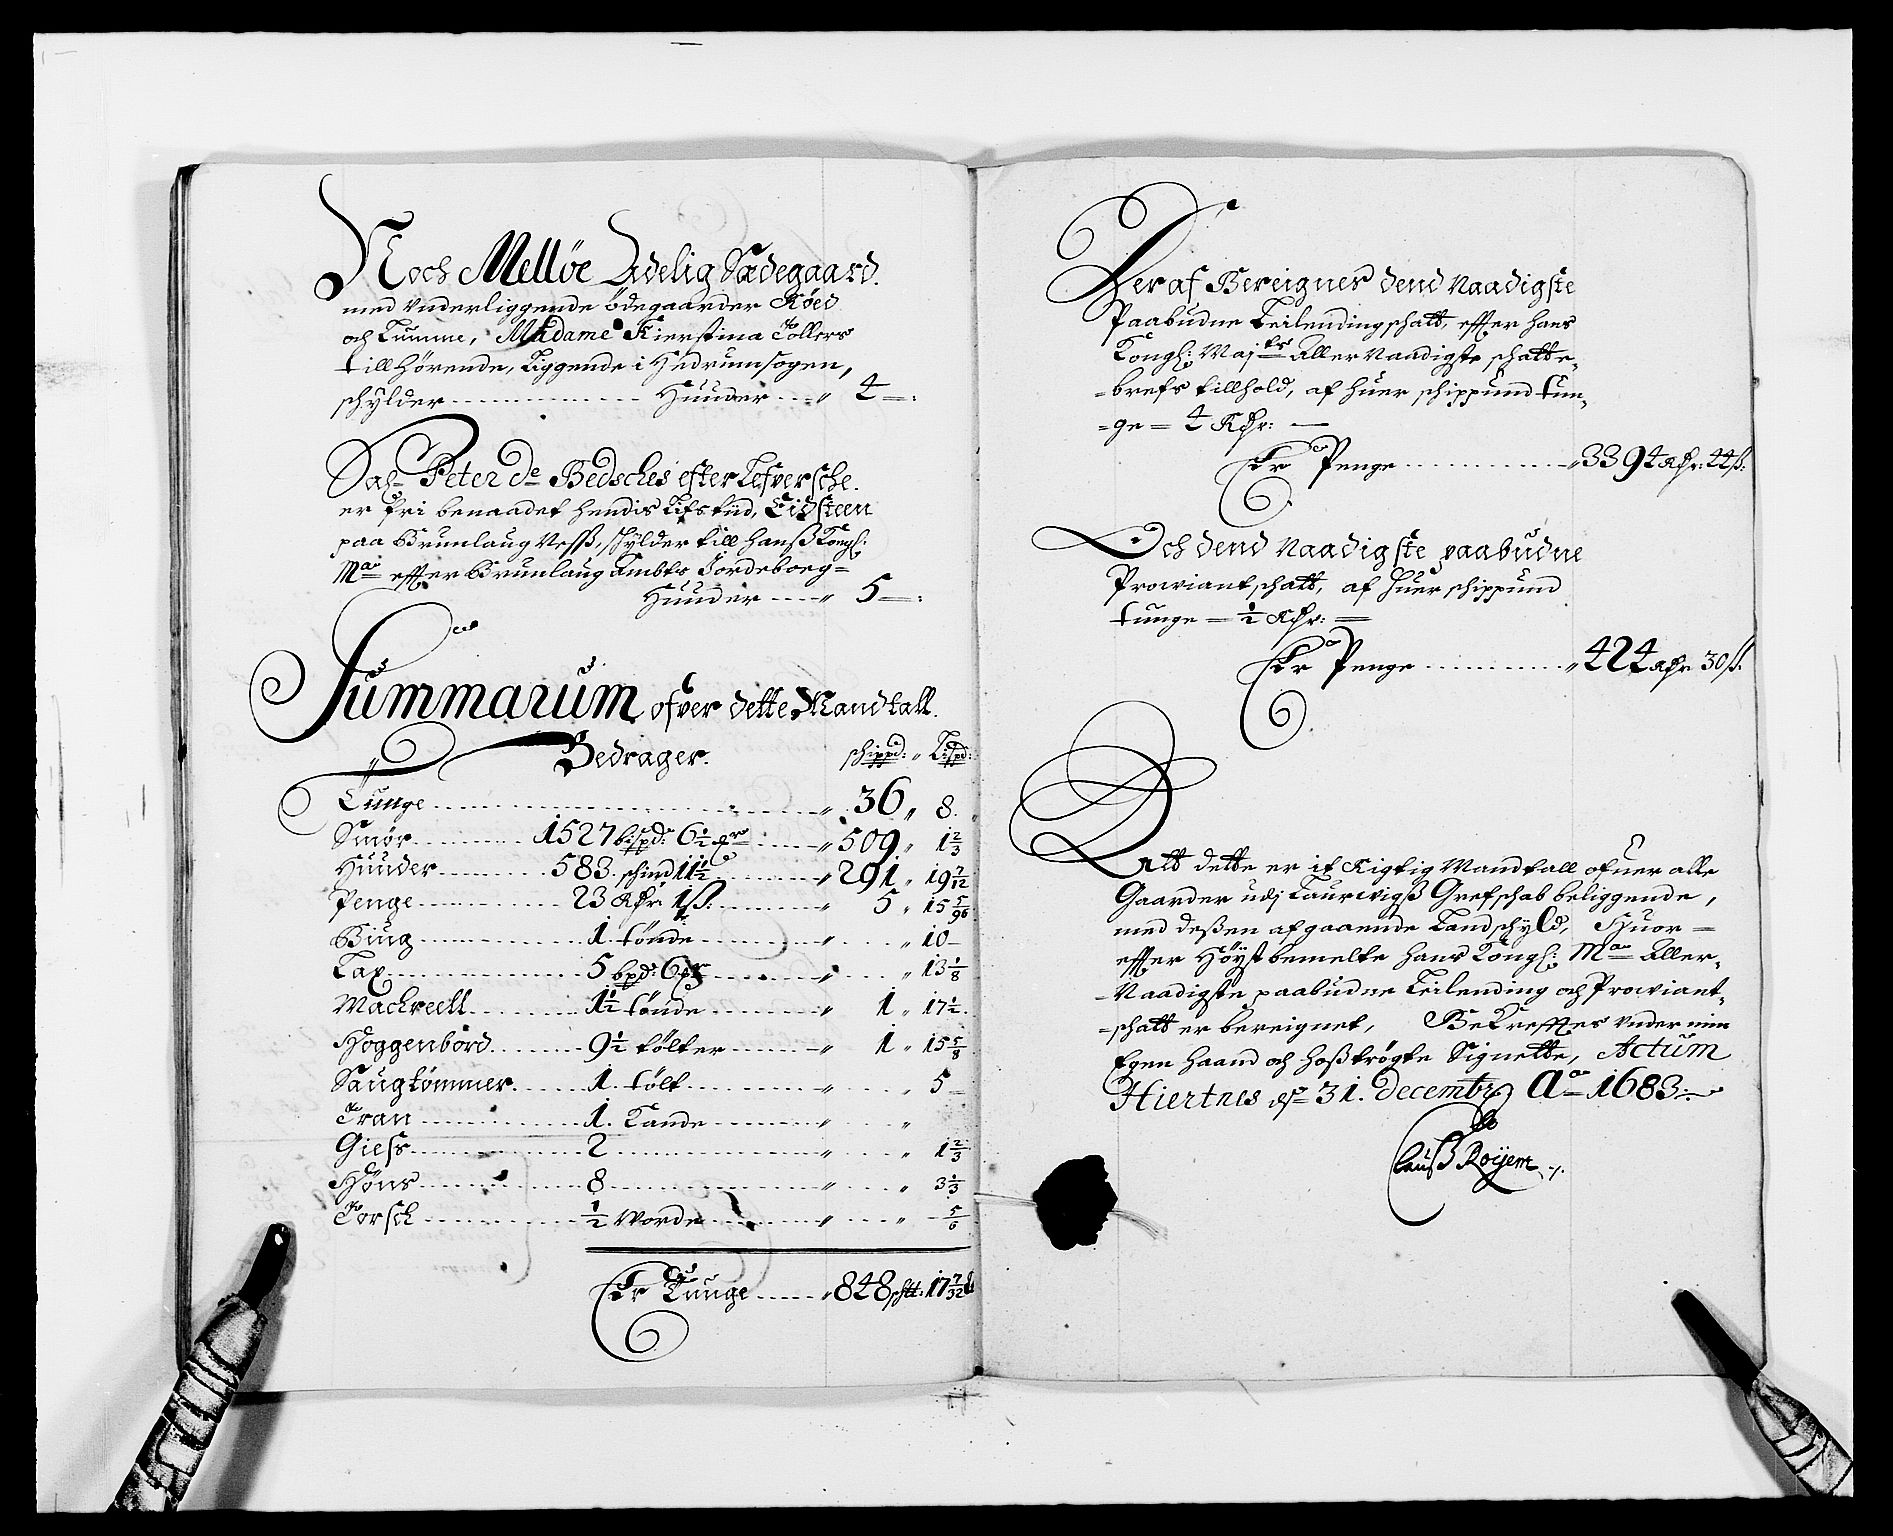 Noch Melløe Adelig Sædegaard.
med vnderliggende ødegaarder Røed
och Tumme, Madame Kierstina Tollers
till hørende, Liggende i Hedrum sogen,
schÿlder ........ Huuder .... 4 –:
Sal: Peter de Bedsches efter Lefversche.
er fri benaadet hendis Lifs tiid, Eidsteen
paa Brunlaug Neß, schÿlder till Hanß Kongl:
Maÿ: effter Brunlaug Ambts Jordeboeg=
Huuder .... 5 –:
Summarum ofver dette Mandtall.
Bedrager. schippd: „ Lispd:
Tunge ........ „ 36 „ 8.
Smør ........ 1527 bispd: 6 1/2 mr ........ „ 509 „ 1 2/3
Huuder ........ 583. schind 11 1/2 ........ „ 291 „ 19 7/12
Penge ........ 23 Rdr: 1 ß: ........ „ 5 „ 15 5/96
Biug ........ 1. tønde ........ „ .... „ 10 –
Lax ........ 5 bpd: 6 mr ........ „ .... „ 13 1/8
Mackreell ........ 1 1/2 tønde ........ „ 1 „ 17 1/2.
Hoggenbord ........ 9 1/2 tølter ........ „ 1 „ 15 5/8
Saugtømmer. ........ 1. tølt ........ „ „ 5 –
Tran ........ 1. Kande ........ „ .... „
Giess ........ 2 ........ „ .... „ 1 2/3
Høns ........ 8 ........ „ .... „ 3 1/3
Torsch ........ 1/2 Worde ........ „ .... „ – 5/6
Er Tunge ..... „ 848 sch℔: 17 7/32 ℔
Der af Bereignes dend Naadigste
Paabudne Leilending schatt, effter hans
Kongl: Maÿts Aller Naadigste schatte-
-brefs tillhold, af huer schippund tun-
-ge = 4 Rdr: —
Er Penge ........ „ 3394 Rdr: 44 ß:
Och dend Naadigste paabudne
Prowiant schatt, af huer schippund
tunge = 1/2 Rdr: =
Er Penge ........ „ 424 Rdr 30 ß.
Att dette er it Rigtig Mandtall ofuer alle
Gaarder udj Laurwigß Grefschab beliggende,
med deßen afgaaende Landschyld, Huor =
effter Høyst bemelte hans Kongl: Maÿ: Aller-
-Naadigste paabudne Leilending och Prowiant-
-schatt er bereignet, Bekrefftes vnder min
Egen haand och hoßtrøgte Signette, Actum
Hiertnes dn 31. decembr Ao 1683 :
Clauß Røÿem